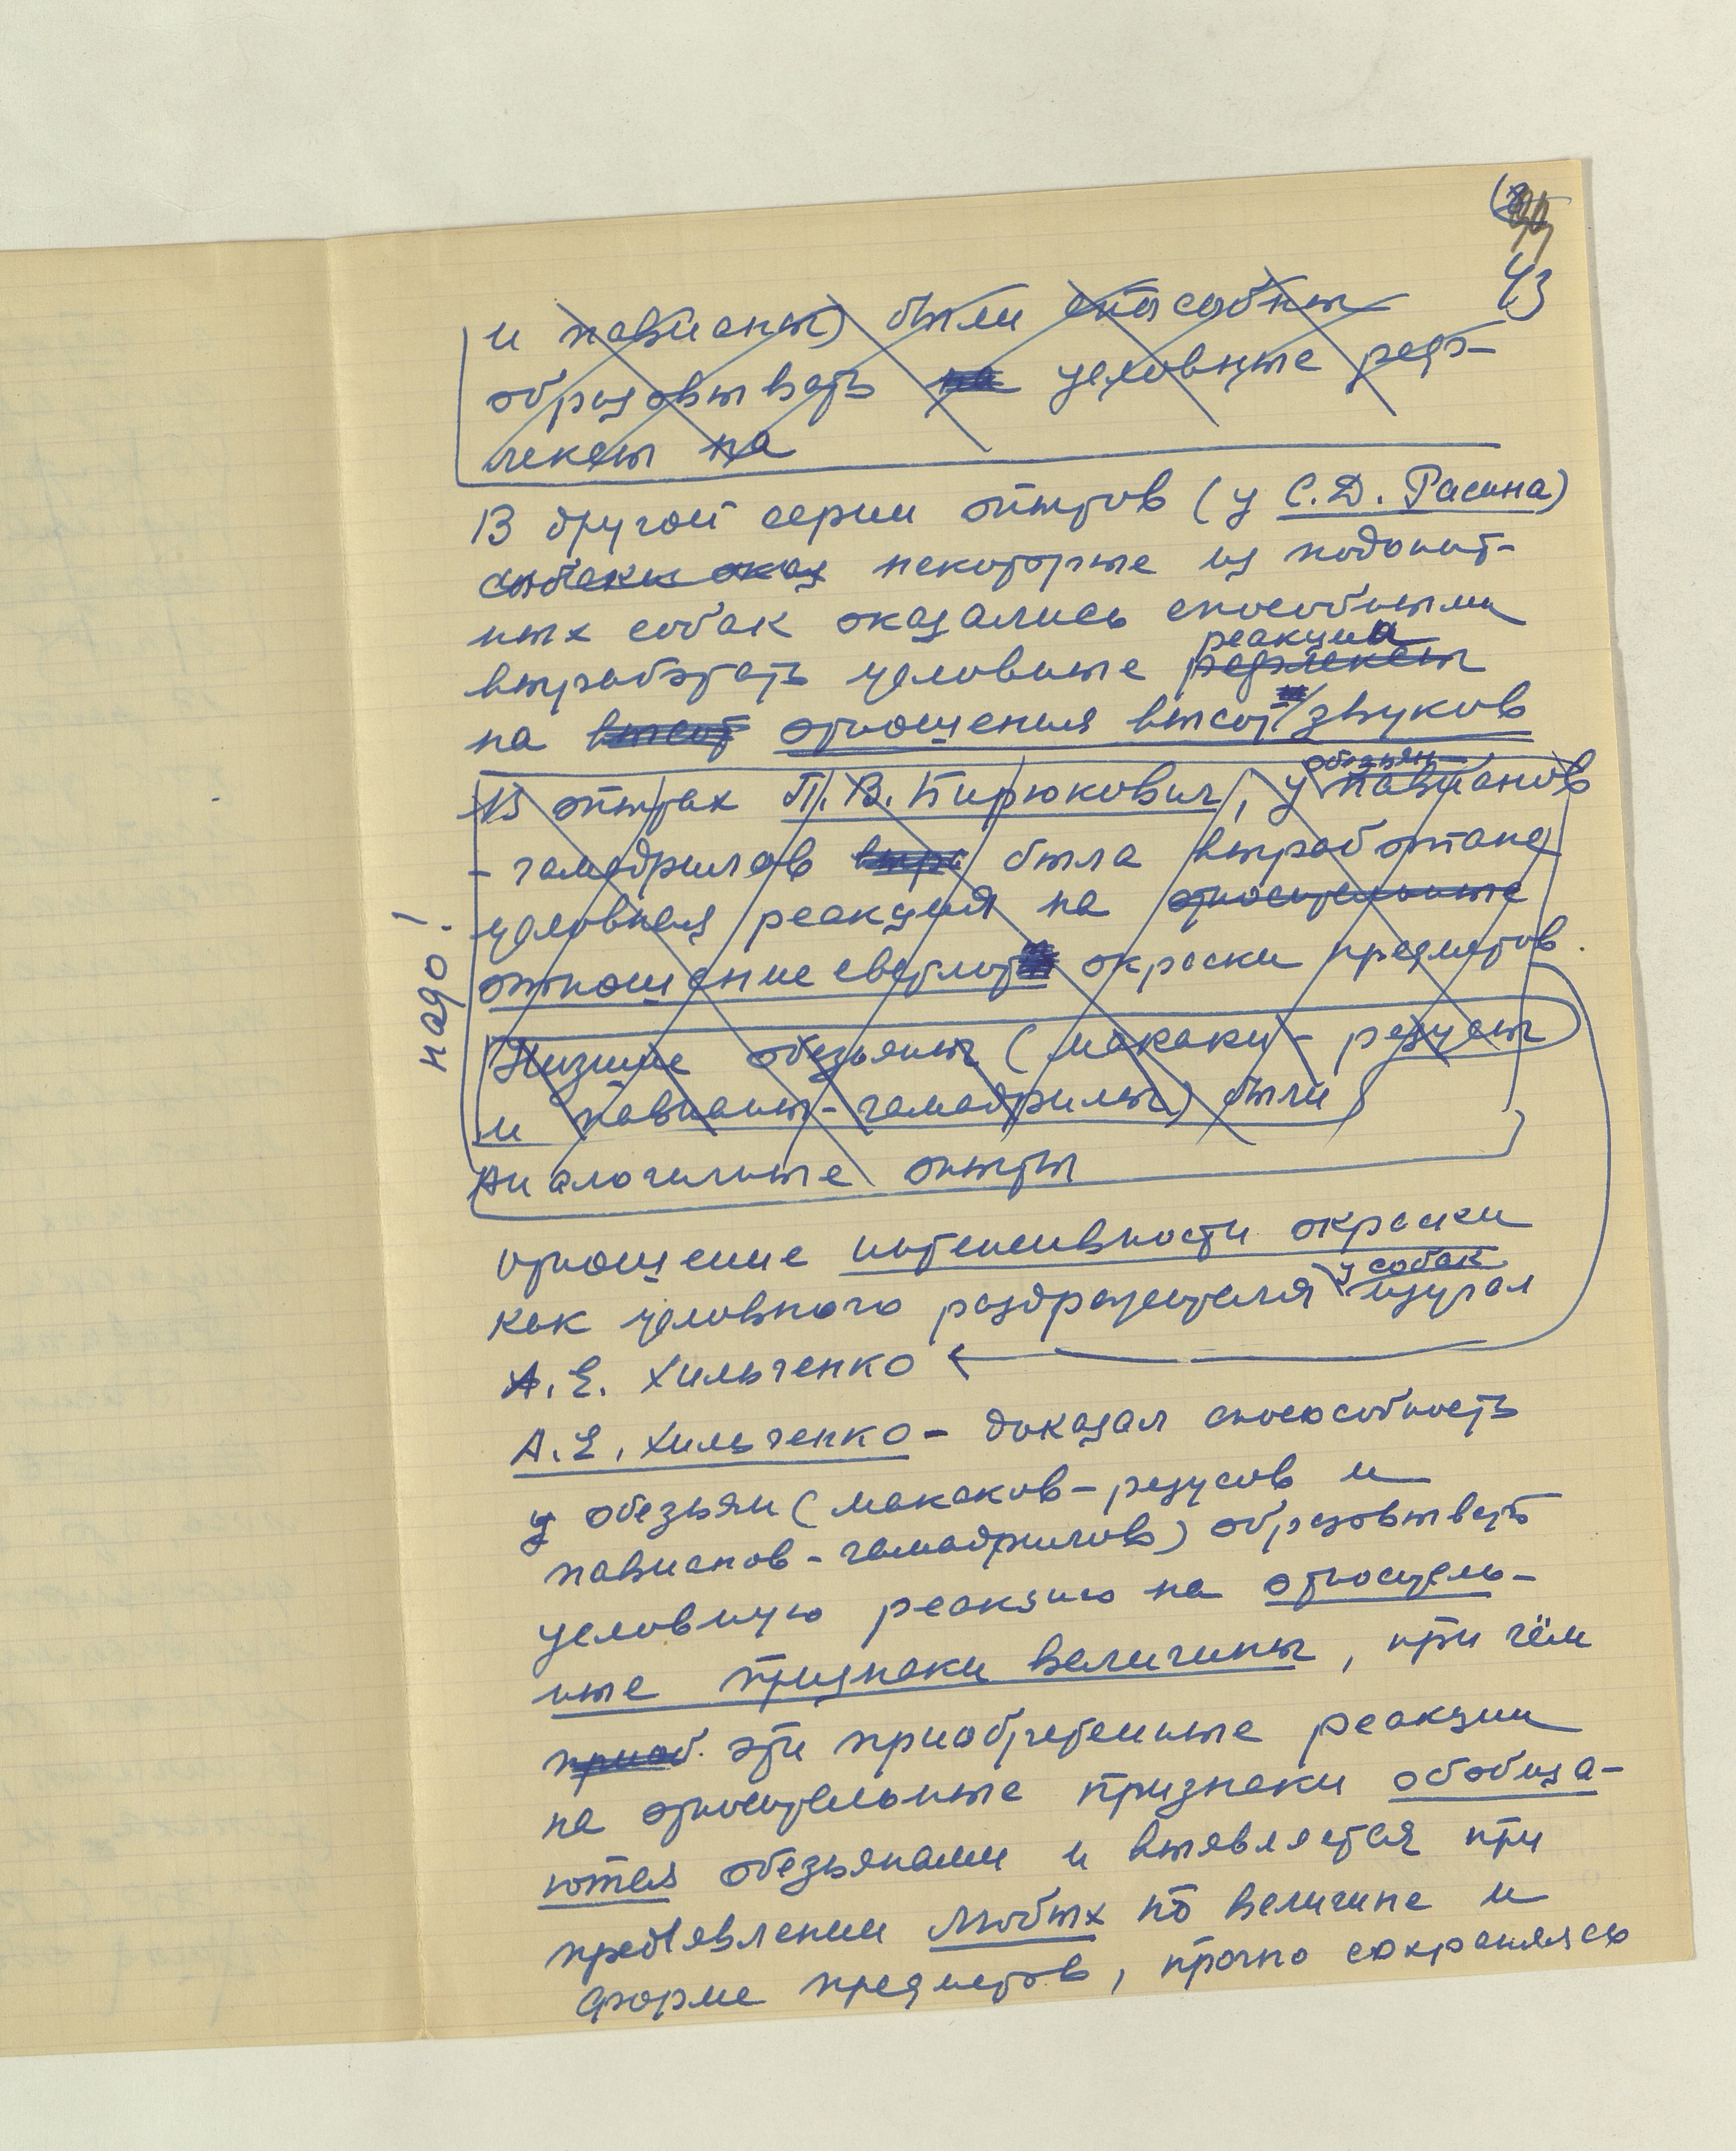 43
и павианы) были способны
образовывать на условные реф-
лексы на
В другой серии опытов (у С.Д. Расина)
собаки оказ некоторые из подопыт-
ных собак оказались способными
реакции
выработать условные рефлексы
на высот отношения высот звуков
обезьян
В опытах П.В. Бирюкович, у павианов
-гамадрилов выра была выработана
условная реакция на относительные
отношение светлот окраски предметов.
надо!
Низшие обезьяны (макаки - резусы
и павианы-гамадрилы) были
Аналогичные опыты
отношение интенсивности окраски
у собак
как условного раздражителя изучал
А.Е. Хильченко
А.Е. Хильченко - доказал способность
у обезьян (макаков-резусов и
павианов-гамадрилов) образовывать
условную реакцию на относитель-
ные признаки величины, при чём
приоб. эти приобретенные реакции
на относительные признаки обобща-
ются обезьянами и выявляется при
предъявлении любых по величине и
форме предметов, прочно сохраняясь